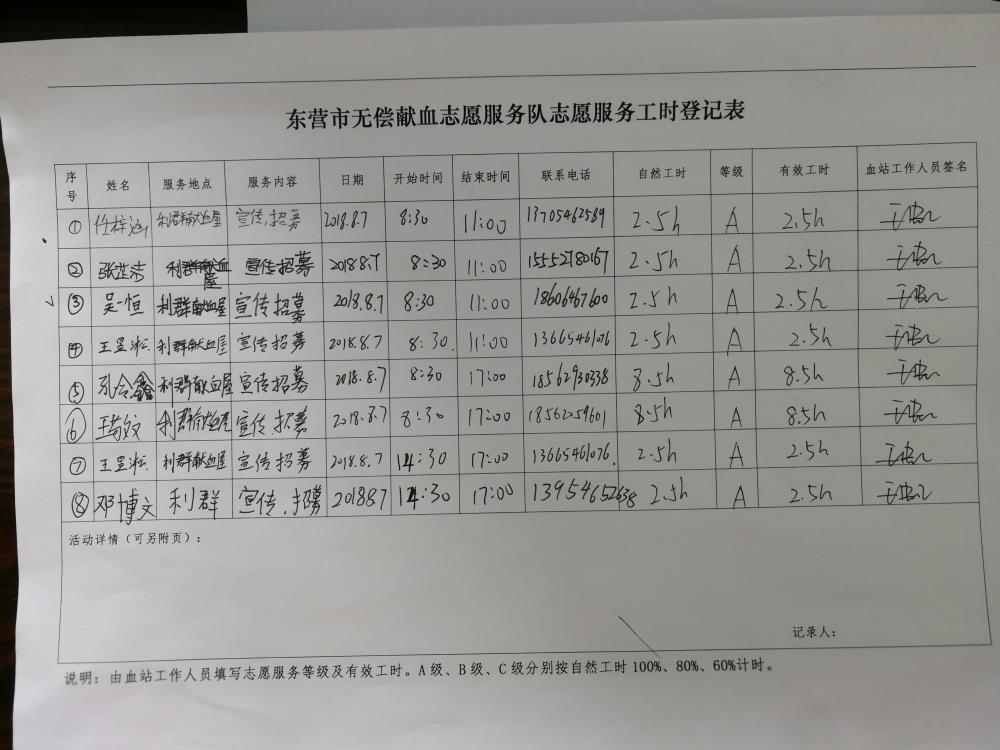 东营市无偿献血志愿服务队志愿服务工时登记表
序号 姓名 服务地点 服务内容 日期 开始时间 结束时间 联系电话 自然工时 等级 有效工时 血站工作人员签名
① 任梓涵 利群献血屋 宣传,招募 2018.8.7 8:30 11:00 13705462589 2.5h A 2.5h
② 张芷洁 利群献血屋 宣传招募 2018.8.7 8:30 11:00 15552780167 2.5h A 2.5h
③ 吴一恒 利群献血屋 宣传招募 2018.8.7 8:30 11:00 18606467600 2.5h A 2.5h
④ 王昱淞 利群献血屋 宣传招募 2018.8.7 8:30. 11:00 13665461076 2.5h A 2.5h
⑤ 孔令鑫 利群献血屋 宣传招募 2018.8.7 8:30 17:00 18562930338 8.5h A 8.5h
⑥ 利群献血屋 宣传,招募 2018.8.7 8:30 17:00 18562059601 8.5h A 8.5h
⑦ 王昱淞 利群献血屋 宣传招募 2018.8.7 14:30 17:00 13665461076. 2.5h A 2.5h
⑧ 邓博文 利群 宣传,招募 201887 14:30 17:00 13954652638 2.5h A 2.5h
活动详情（可另附页）：
记录人：
说明：由血站工作人员填写志愿服务等级及有效工时。A级、B级、C级分别按自然工时100%、80%、60%计时。